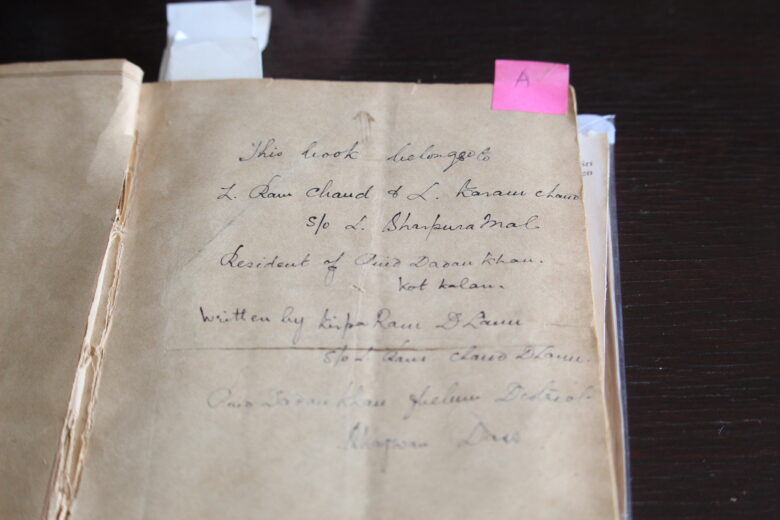 A
This book belongs to
L. Ram Chand & L. Karam Chand
S/o L. Bharpura Mal
Resident of Pind Dadan Khan.
Kot Kalan.
Written by Kirpa Ram D Lamu
S/o L Ram Chand D Lamu.
Pind Dadan Khan Jhelum District.
Bhagwan Dass